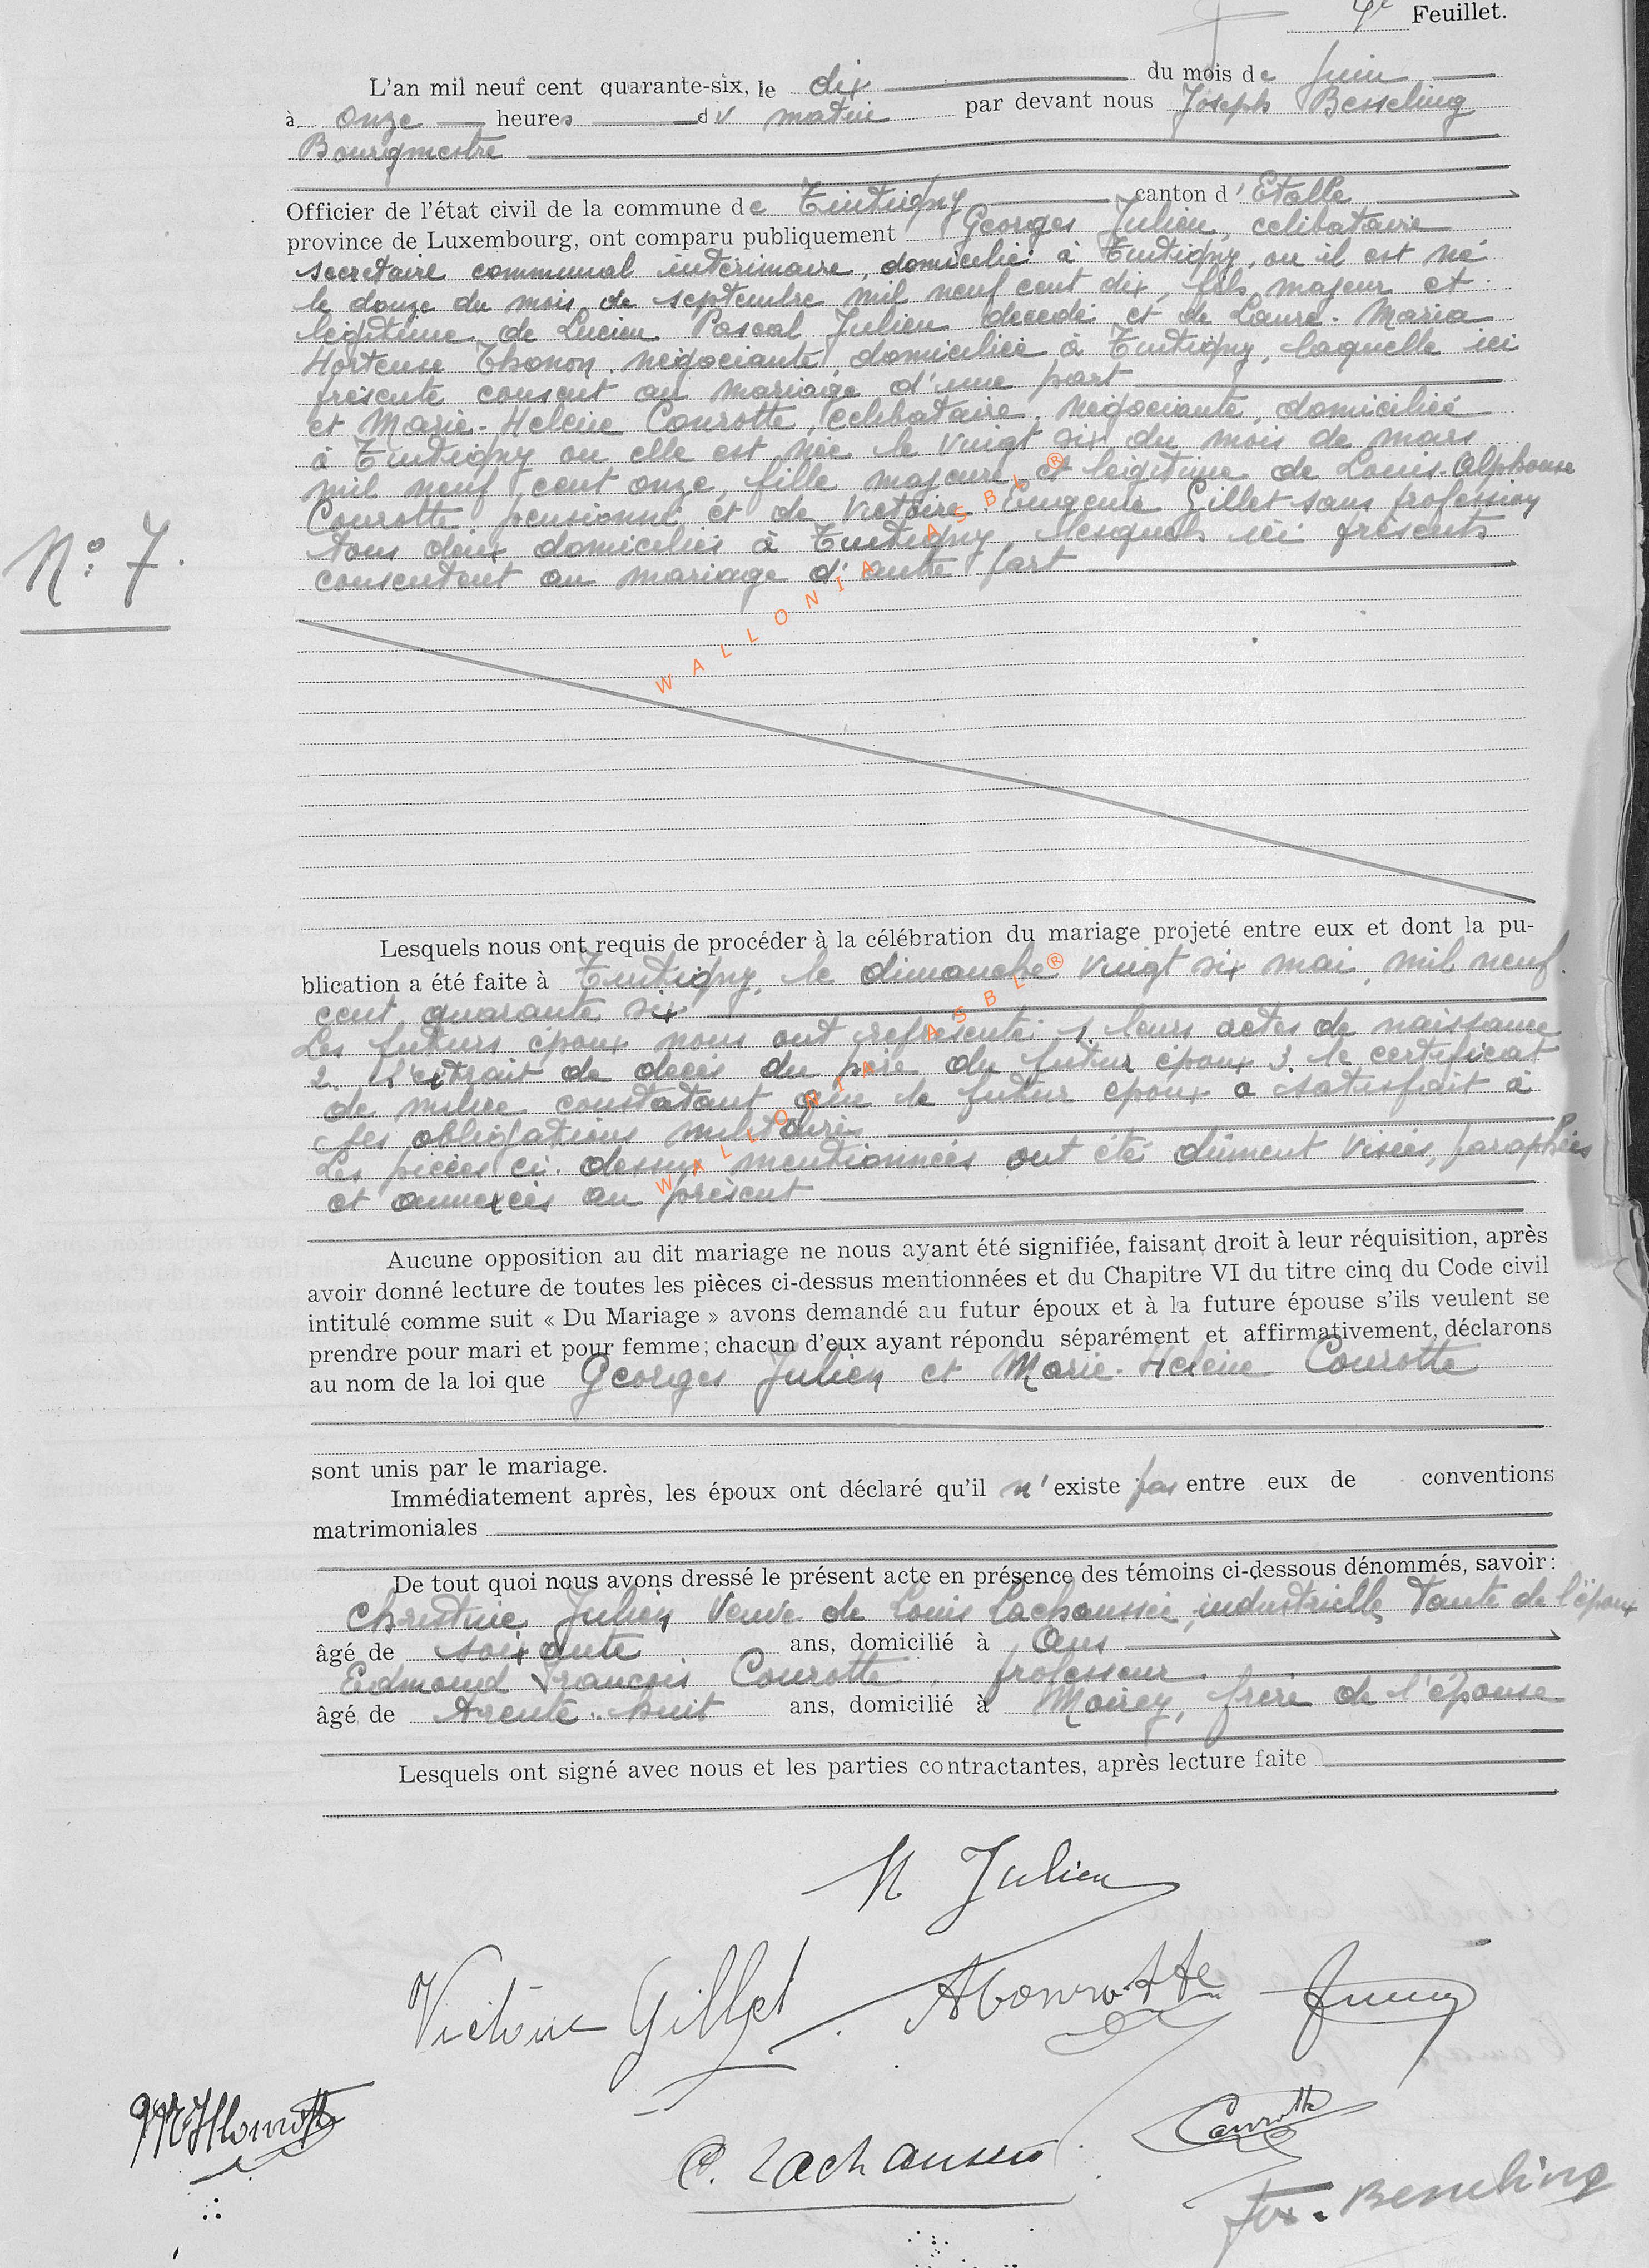 4e Feuillet.
L'an mil neuf cent quarante-six, le dix du mois de Juin
à onze heures du matin par devant nous Joseph Besseling
Bourgmestre
Officier de l'état civil de la commune de Tintigny canton d'Etalle
province de Luxembourg, ont comparu publiquement Georges Julien, celibataire
secretaire communal intérimaire, domicilié à Tintigny, ou il est né
le douze du mois de septembre mil neuf cent dix, fils majeur et
légitime de Lucien Pascal Julien decedé et de Laure-Maria
Hortense Thonon, négociante, domiciliée à Tintigny, laquelle ici
présente consent au mariage d'une part
et Marie-Helène Courotte, célibataire, négociante, domiciliée
à Tintigny ou elle est née le vingt six du mois de mars
mil neuf cent onze, fille majeure et légitime de Louis-Alphonse
Courotte pensionné et de Victoire-Eugenie Gillet sans profession
tous deux domiciliés à Tintigny, lesquels ici présents
consentent au mariage d'autre part
No: 7.
WALLONIA ASBL ®
Lesquels nous ont requis de procéder à la célébration du mariage projeté entre eux et dont la pu-
blication a été faite à Tintigny, le dimanche vingt six mai, mil neuf
cent quarante six
Les futurs époux nous ont représenté: 1. leurs actes de naissance
2. l'extrait de décès du père du futur époux 3. le certificat
de milice constatant que le futur époux a satisfait à
ses obligations militaires
Les pièces ci-dessus mentionnées ont été dûment visées, paraphées
et annexées au présent
WALLONIA ASBL ®
Aucune opposition au dit mariage ne nous ayant été signifiée, faisant droit à leur réquisition, après
avoir donné lecture de toutes les pièces ci-dessus mentionnées et du Chapitre VI du titre cinq du Code civil
intitulé comme suit « Du Mariage » avons demandé au futur époux et à la future épouse s'ils veulent se
prendre pour mari et pour femme; chacun d'eux ayant répondu séparément et affirmativement, déclarons
au nom de la loi que Georges Julien et Marie-Helène Courotte
sont unis par le mariage.
Immédiatement après, les époux ont déclaré qu'il n'existe pas entre eux de conventions
matrimoniales
De tout quoi nous avons dressé le présent acte en présence des témoins ci-dessous dénommés, savoir:
Christine Julien Veuve de Louis Lachaussée, industrielle, Tante de l'époux
âgé de soixante ans, domicilié à Ans
Edmond François Courotte, professeur.
âgé de trente-huit ans, domicilié à Moircy, frère de l'épouse
Lesquels ont signé avec nous et les parties contractantes, après lecture faite
Julien
Victoire Gillet Courotte
MHCourotte
C. Lachaussée
Courotte
Jos. Besseling